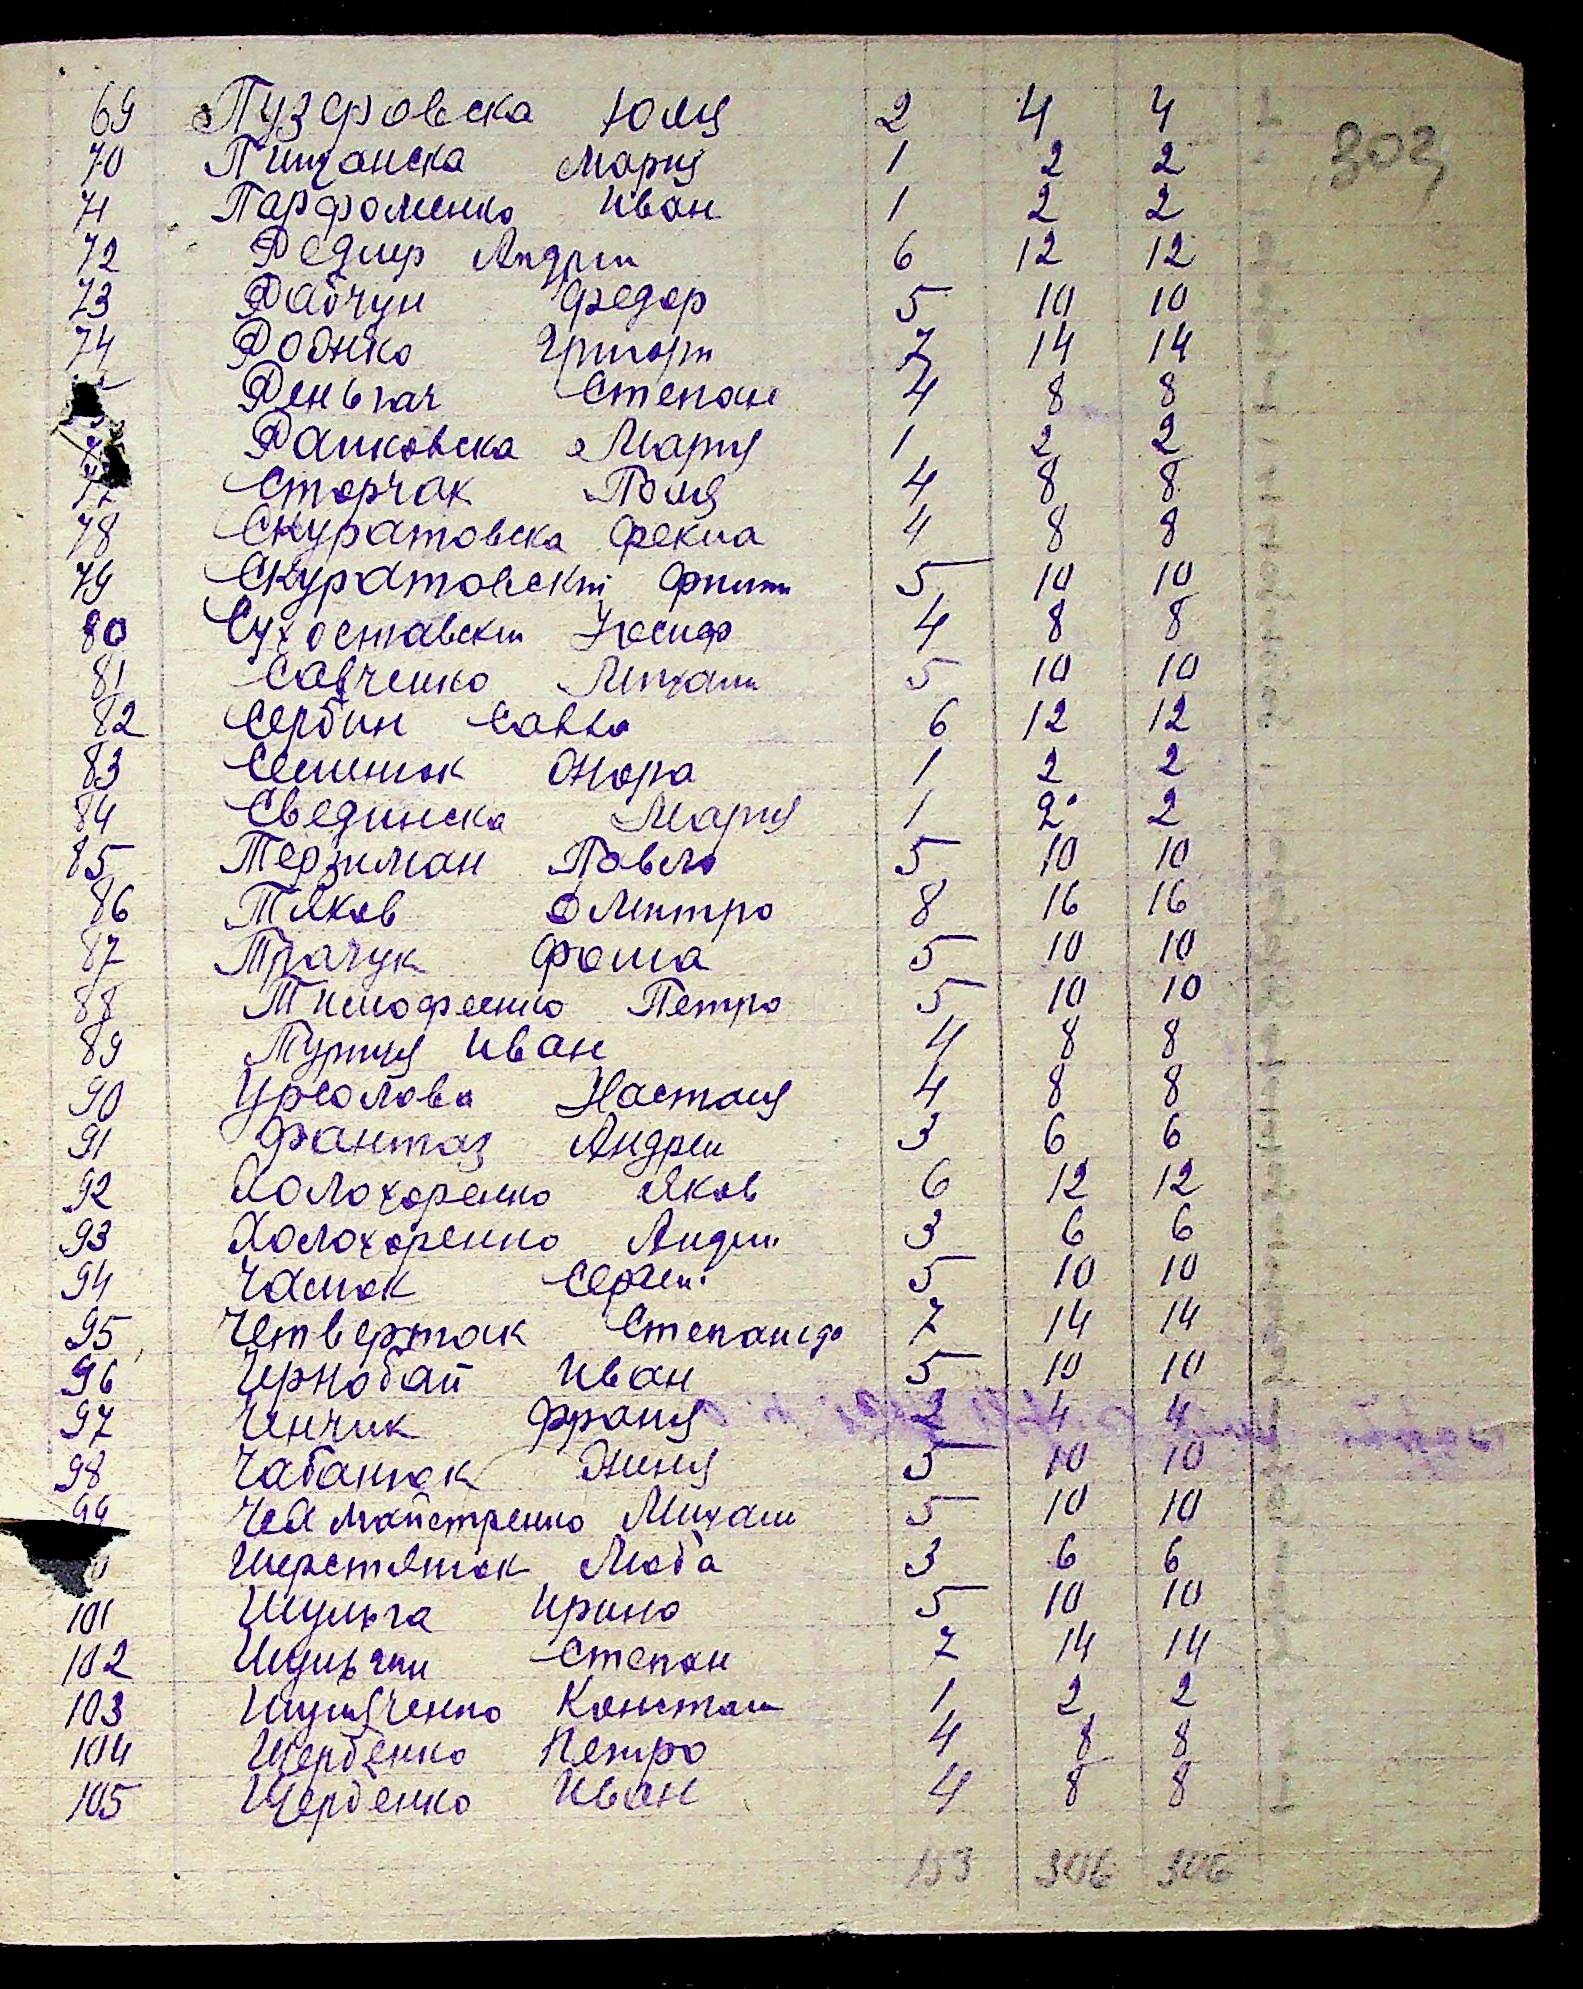 303
69 Пузировска Юлія 2 4 4
70 Пищанска Марія 1 2 2
71 Парфоменко Иван 1 2 2
72 Андрій 6 12 12
73 Рабчун Федор 5 10 10
74 Григорій 7 14 14
Реньгач Степан 4 8 8
Раиковска Марія 1 2 2
77 Сторчак Поля 4 8 8
78 Скуратовска Фекла 4 8 8
79 Скуратовскій 5 10 10
80 Сухоставскій Йосиф 4 8 8
81 Савченко Михаил 5 10 10
82 Сербин Савка 6 12 12
83 Семенюк 1 2 2
84 Свединска Марія 1 2 2
85 Терзиман Павло 5 10 10
86 Тяков Дмитро 8 16 16
87 Ткачук Фома 5 10 10
88 Тимофеенко Петро 5 10 10
89 Иван 4 8 8
90 Урсолова Настасія 4 8 8
91 Фантаз Андреи 3 6 6
92 Холохоренко Яков 6 12 12
93 Холохоренко Андрій 3 6 6
94 Чамок Сергеи 5 10 10
95 Четвертак Степанида 7 14 14
96 Чернобай Иван 5 10 10
97 Ченчик Франя 2 4 4
98 Чабанюк 5 10 10
99 Михаил 5 10 10
Шерстянюк Люба 3 6 6
101 Шульга Ирина 5 10 10
102 Шульгин Степан 7 14 14
103 Шуляченко Констан 1 2 2
104 Щербенко Петро 4 8 8
105 Щербенко Иван 4 8 8
153 306 306